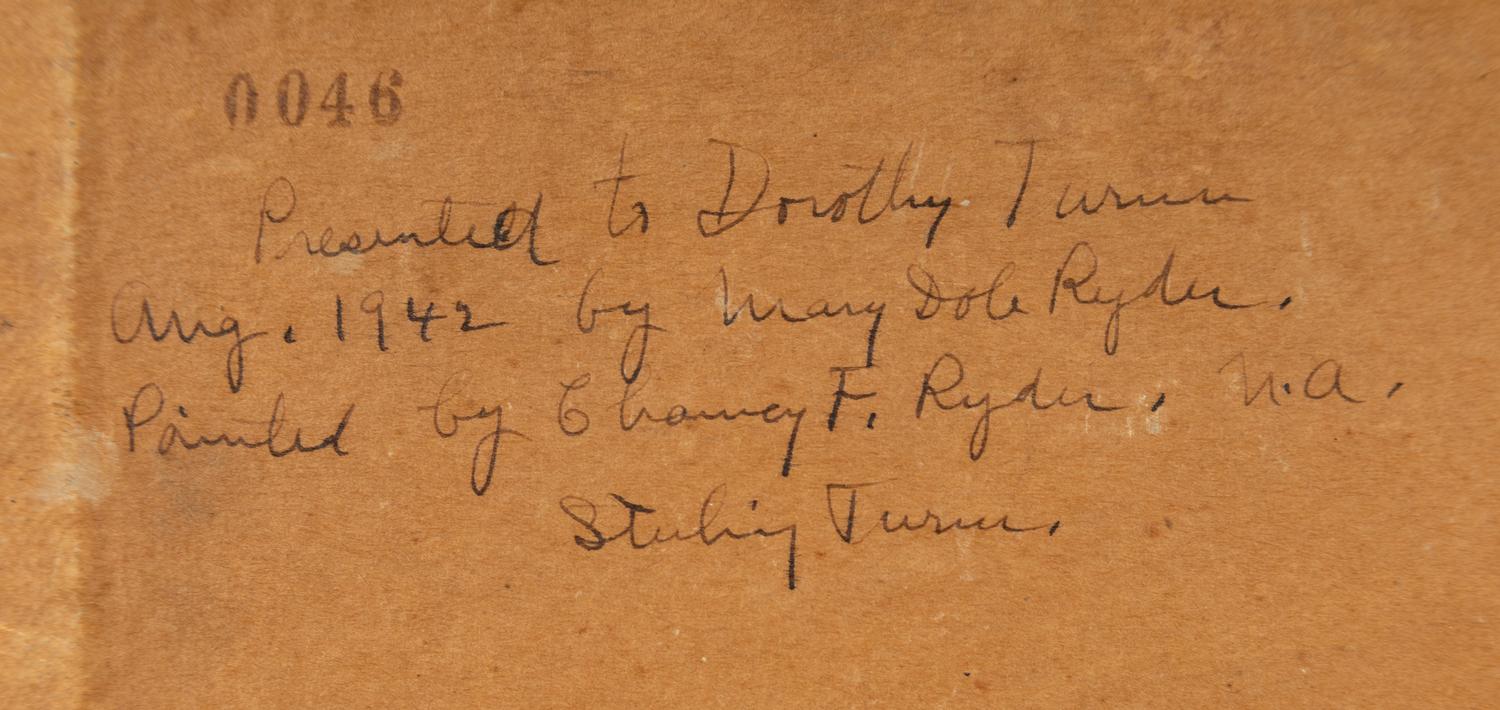 0046
Presented to Dorothy Turner
Aug. 1942 by Mary Dole Ryder.
Painted by Chauncey F. Ryder, N.A.
Sterling Turner.